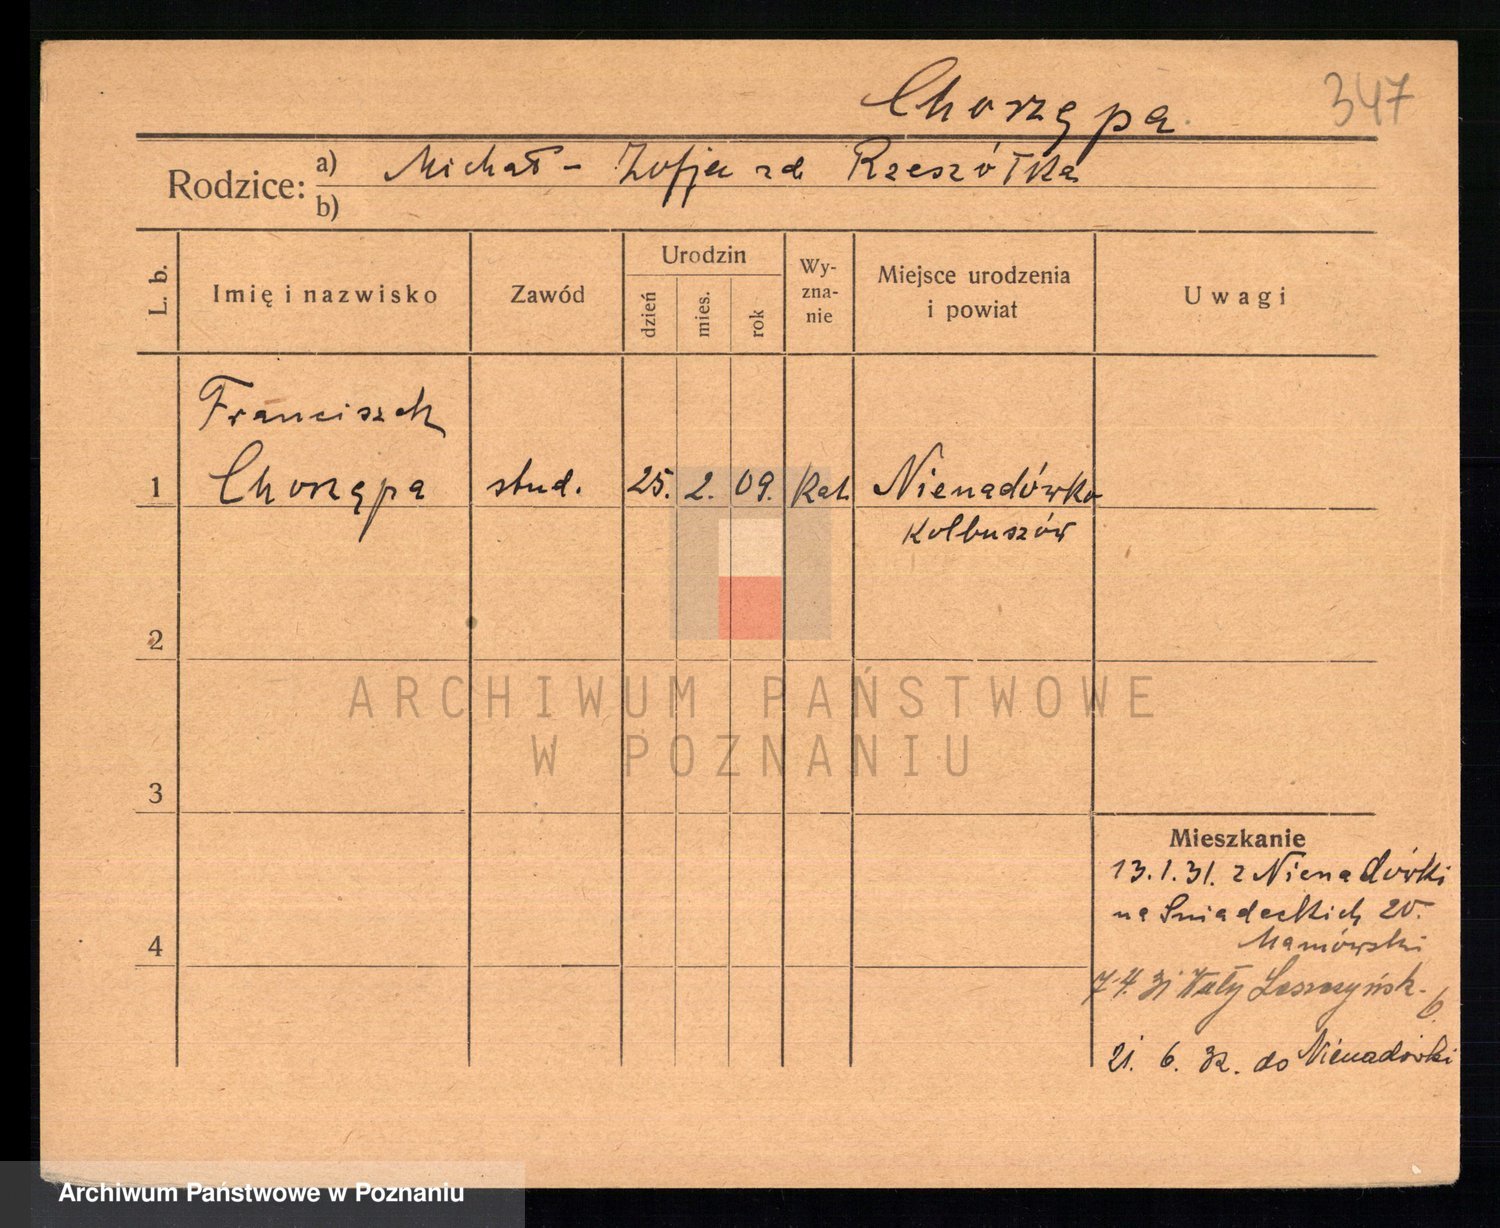 Chorzępa
347
Rodzice: a) Michał - Zofja zd Rzeszótka
b)
L. b.
Imię i nazwisko
Zawód
Urodzin
dzień
mies.
rok
Wy-
zna-
nie
Miejsce urodzenia
i powiat
Uwagi
Franciszek
1 Chorzępa stud. 25. 2. 09. kat. Nienadówka
Kolbuszów
2
ARCHIWUM PAŃSTWOWE
W POZNANIU
3
Mieszkanie
13.1.31. z Nienadówki
na Sniadeckich 20.
4
7.4.31 Wały Leszczyńsk. 6.
21. 6. 32. do Nienadówki
Archiwum Państwowe w Poznaniu